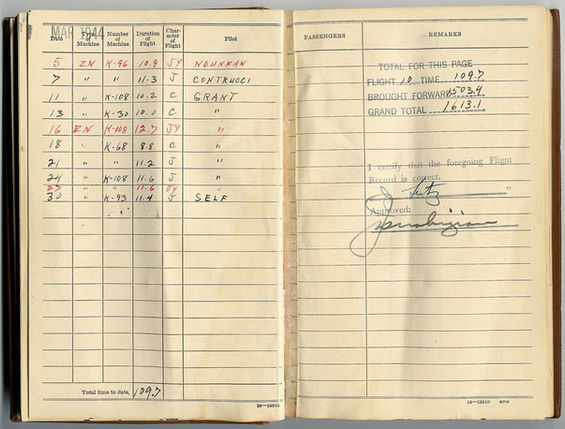 MAR 1944
Date Type of Machine Number of Machine Duration of Flight Character of Flight Pilot
5 ZN K-96 10.9 JY NOUNNAN
7 " " 11.3 J CONTRUCCI
11 " K-108 10.2 C GRANT
13 " K-30 10.0 C "
16 ZN K-108 12.7 JY "
18 " K-68 8.8 C "
21 " " 11.2 J "
24 " K-108 11.6 J "
27 " " 11.6 JY "
30 " K-93 11.4 J SELF
Total time to date, 109.7
PASSENGERS REMARKS
TOTAL FOR THIS PAGE
FLIGHT 10 TIME 109.7
BROUGHT FORWARD 1503.4
GRAND TOTAL 1613.1
I certify that the foregoing Flight
Record is correct.
Approved:
GPO